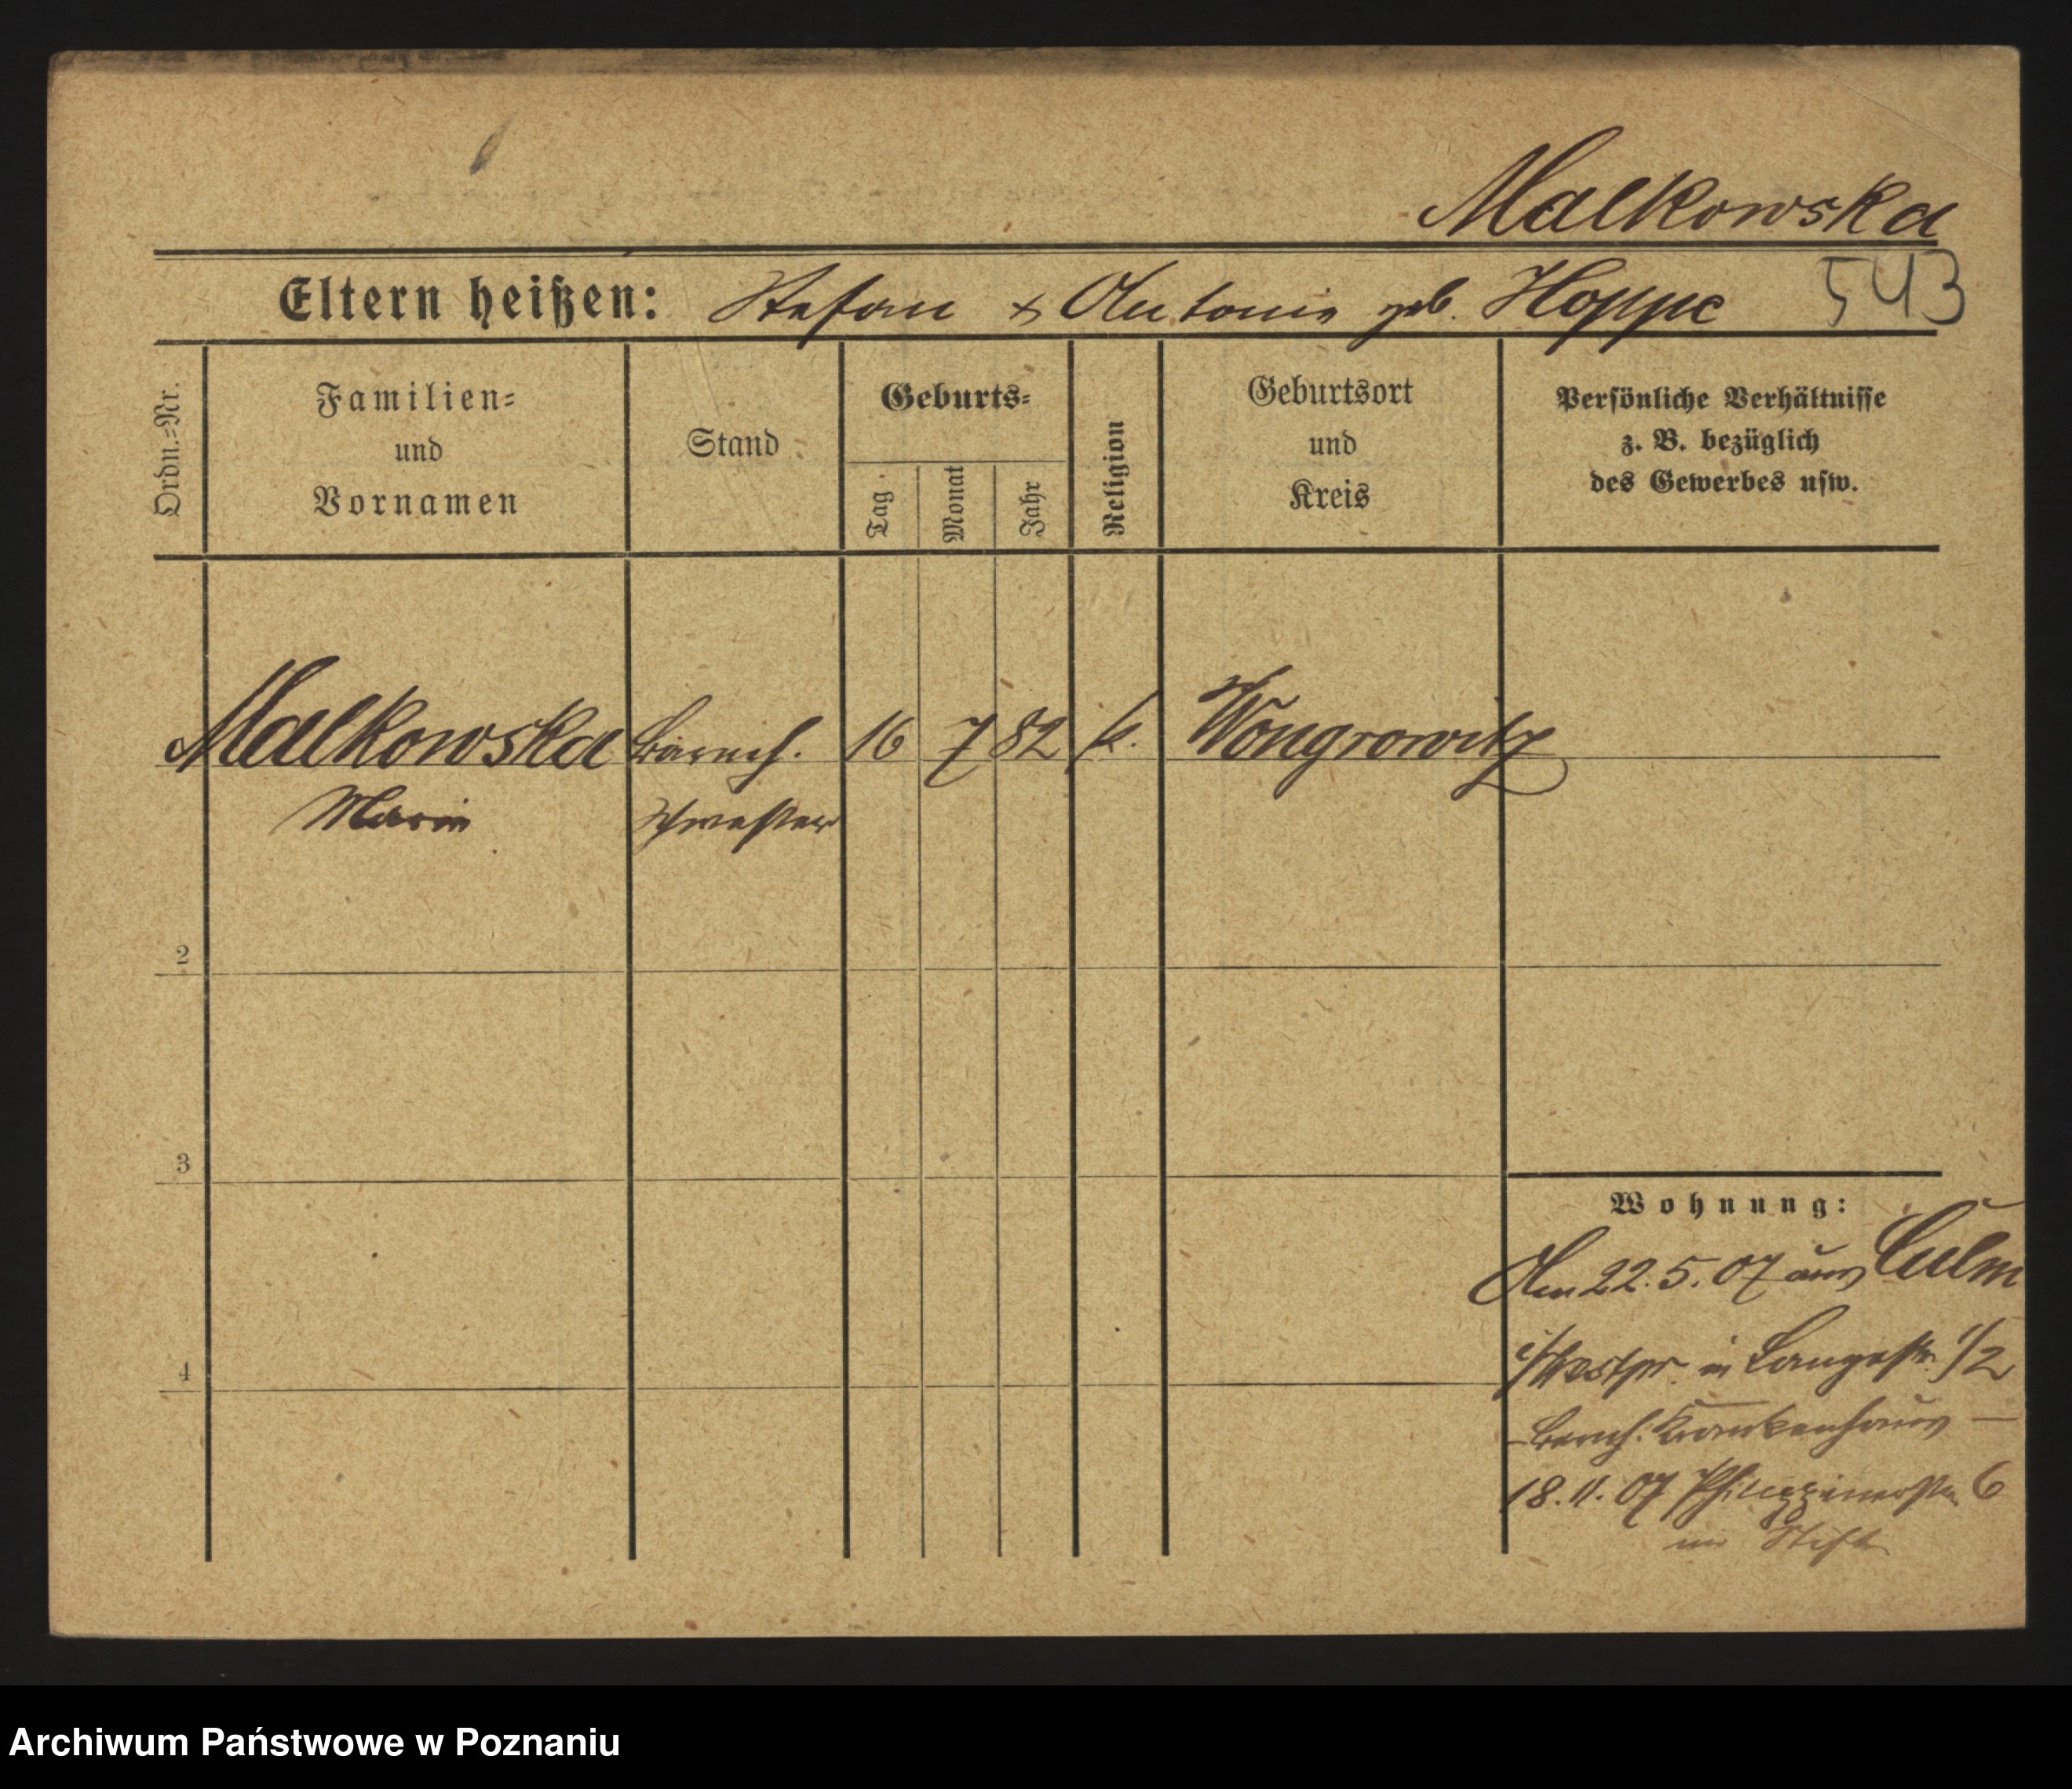 Malkowska
Eltern heißen: Stefan & Antonie geb. Hoppe 543
Ordn.=Nr.
Familien=
und
Vornamen
Stand
Geburts=
Tag
Monat
Jahr
Religion
Geburtsort
und
Kreis
Persönliche Verhältnisse
z. B. bezüglich
des Gewerbes usw.
Malkowska barmh. 16 7 82 k. Wongrowitz
Marie Schwester
2
3
4
Wohnung:
Am 22.5.07 aus Culm
i/Westpr. in Langestr. 1/2
- barmh. Krankenhaus -
18.11.07 Philippinerstr. 6
im Stift
Archiwum Państwowe w Poznaniu